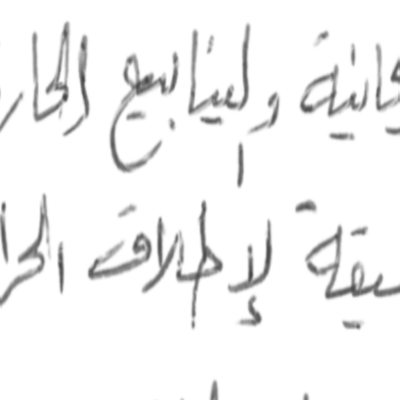 كانية والينابيع الحار
يقة لإطلاق الحرا